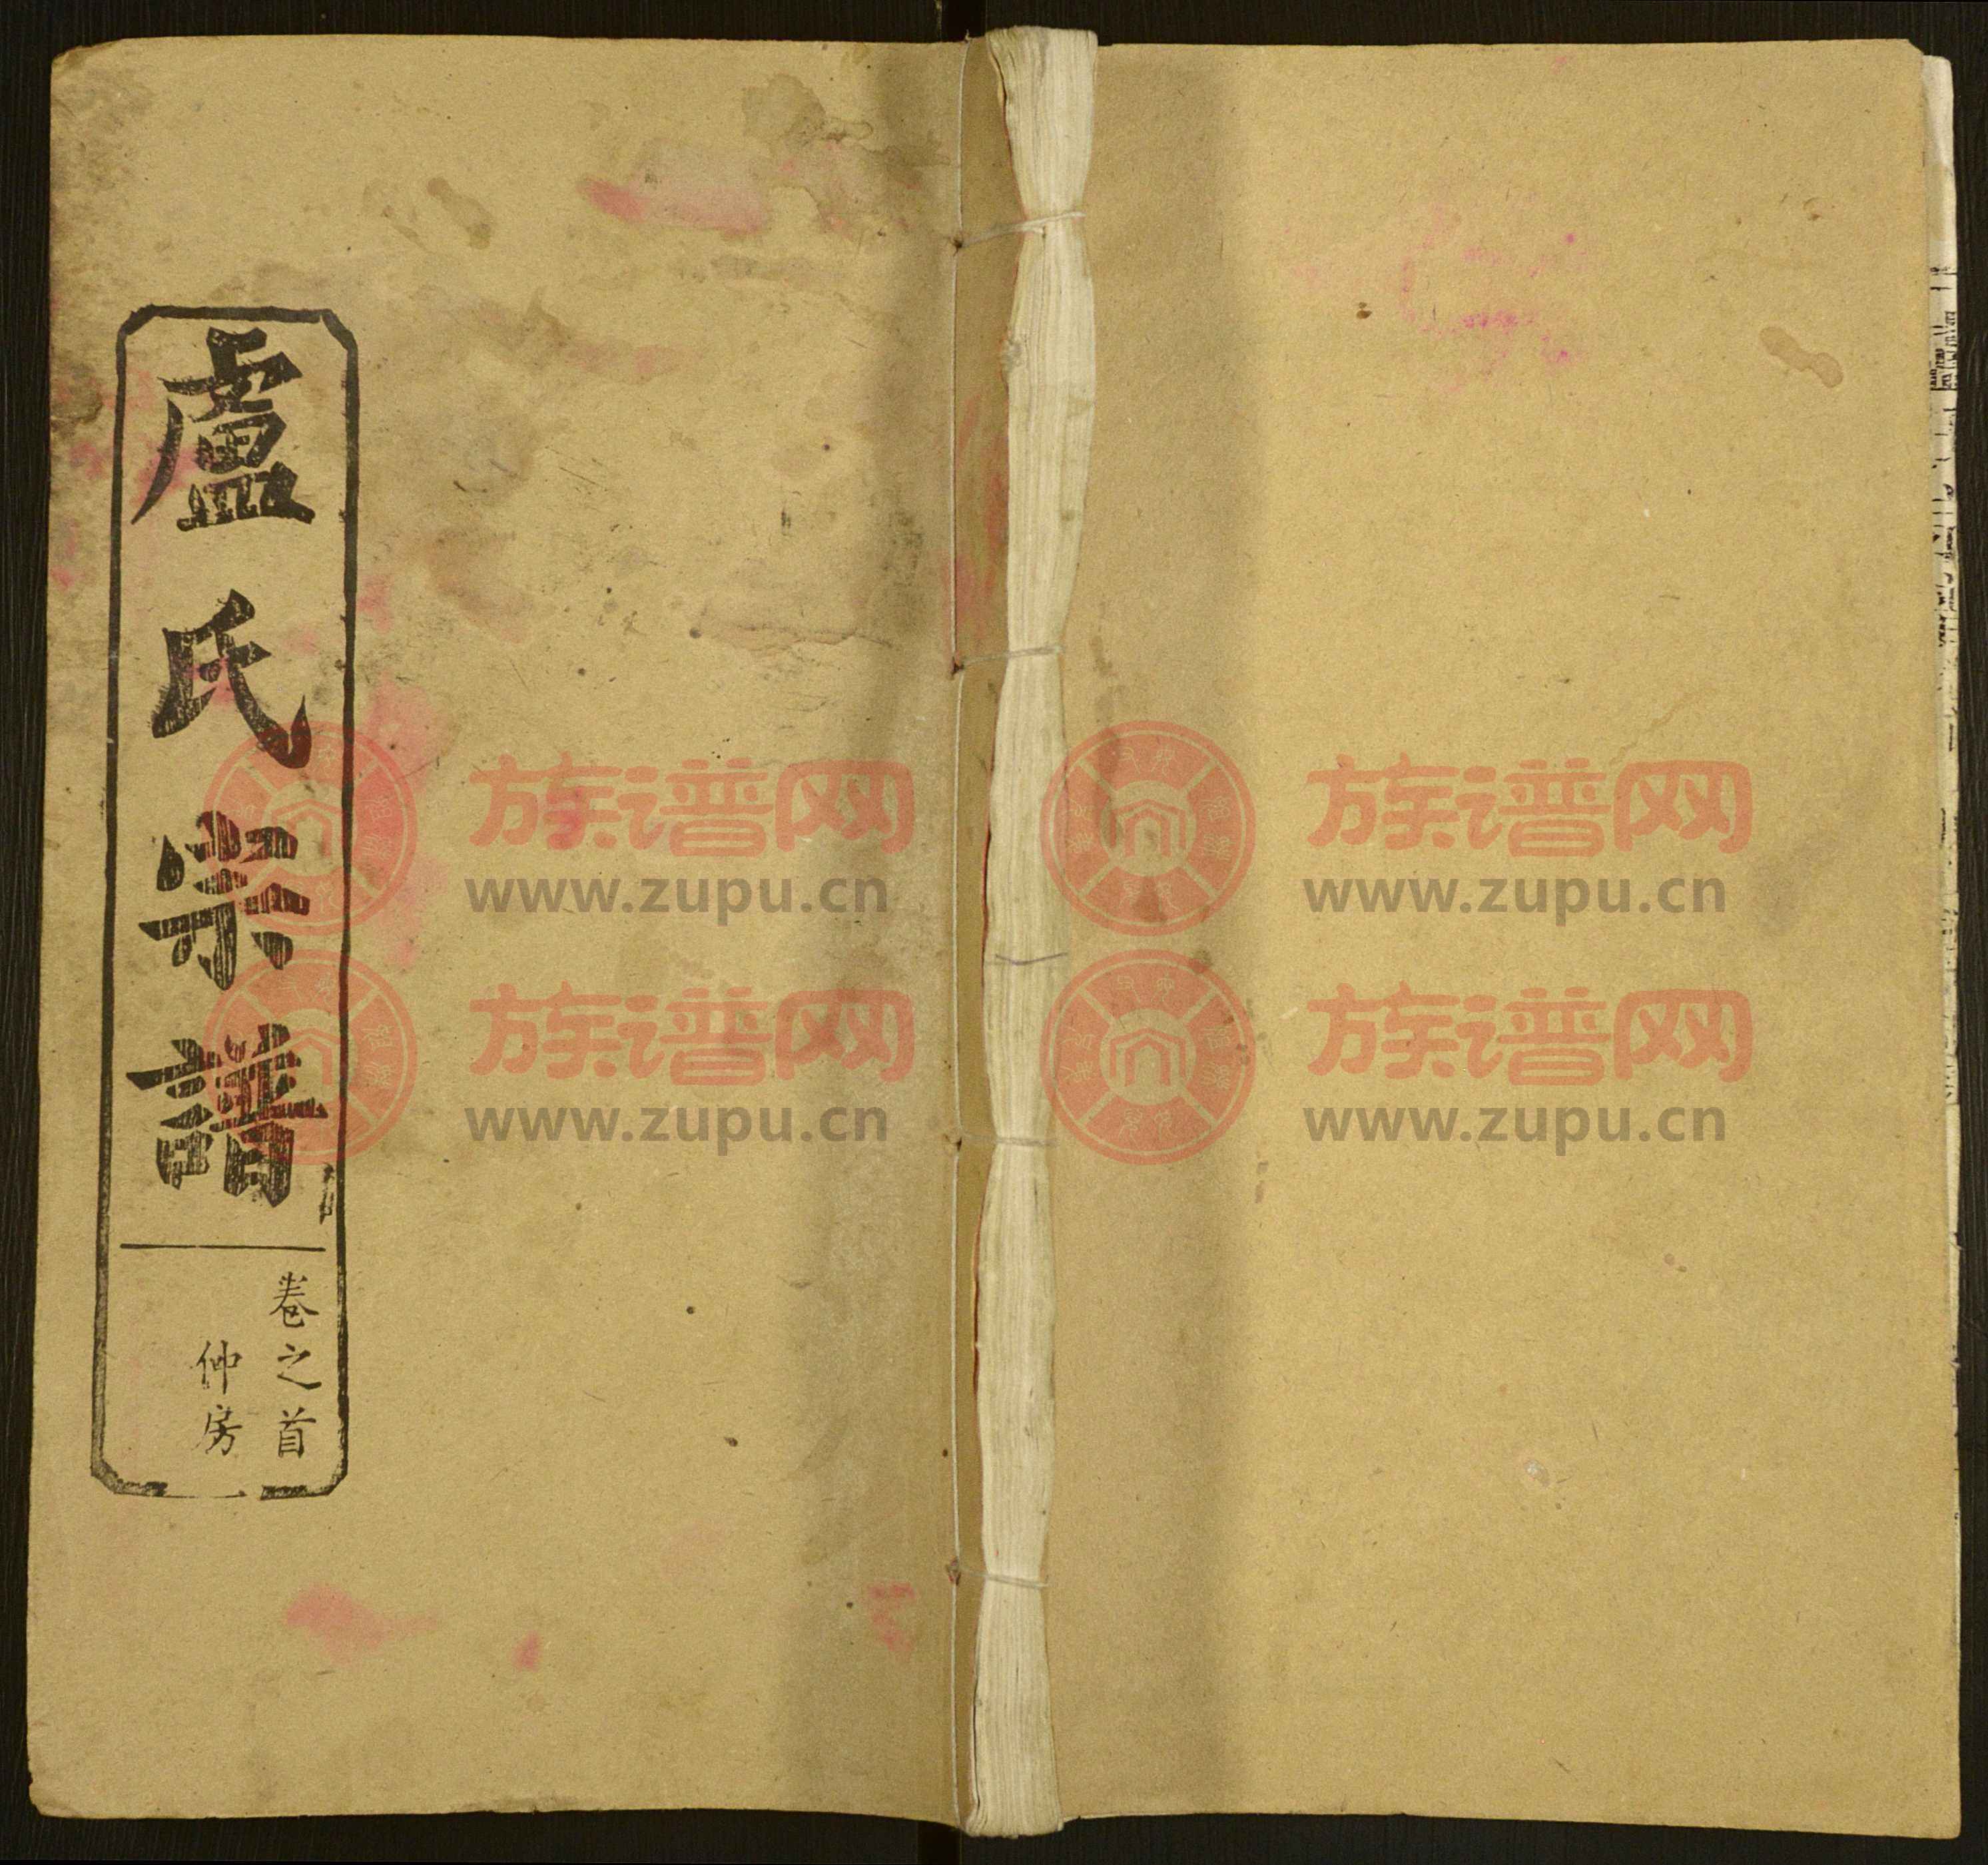 盧氏宗譜
卷之首
仲房
族谱网
www.zupu.cn
族谱网
www.zupu.cn
族谱网
www.zupu.cn
族谱网
www.zupu.cn